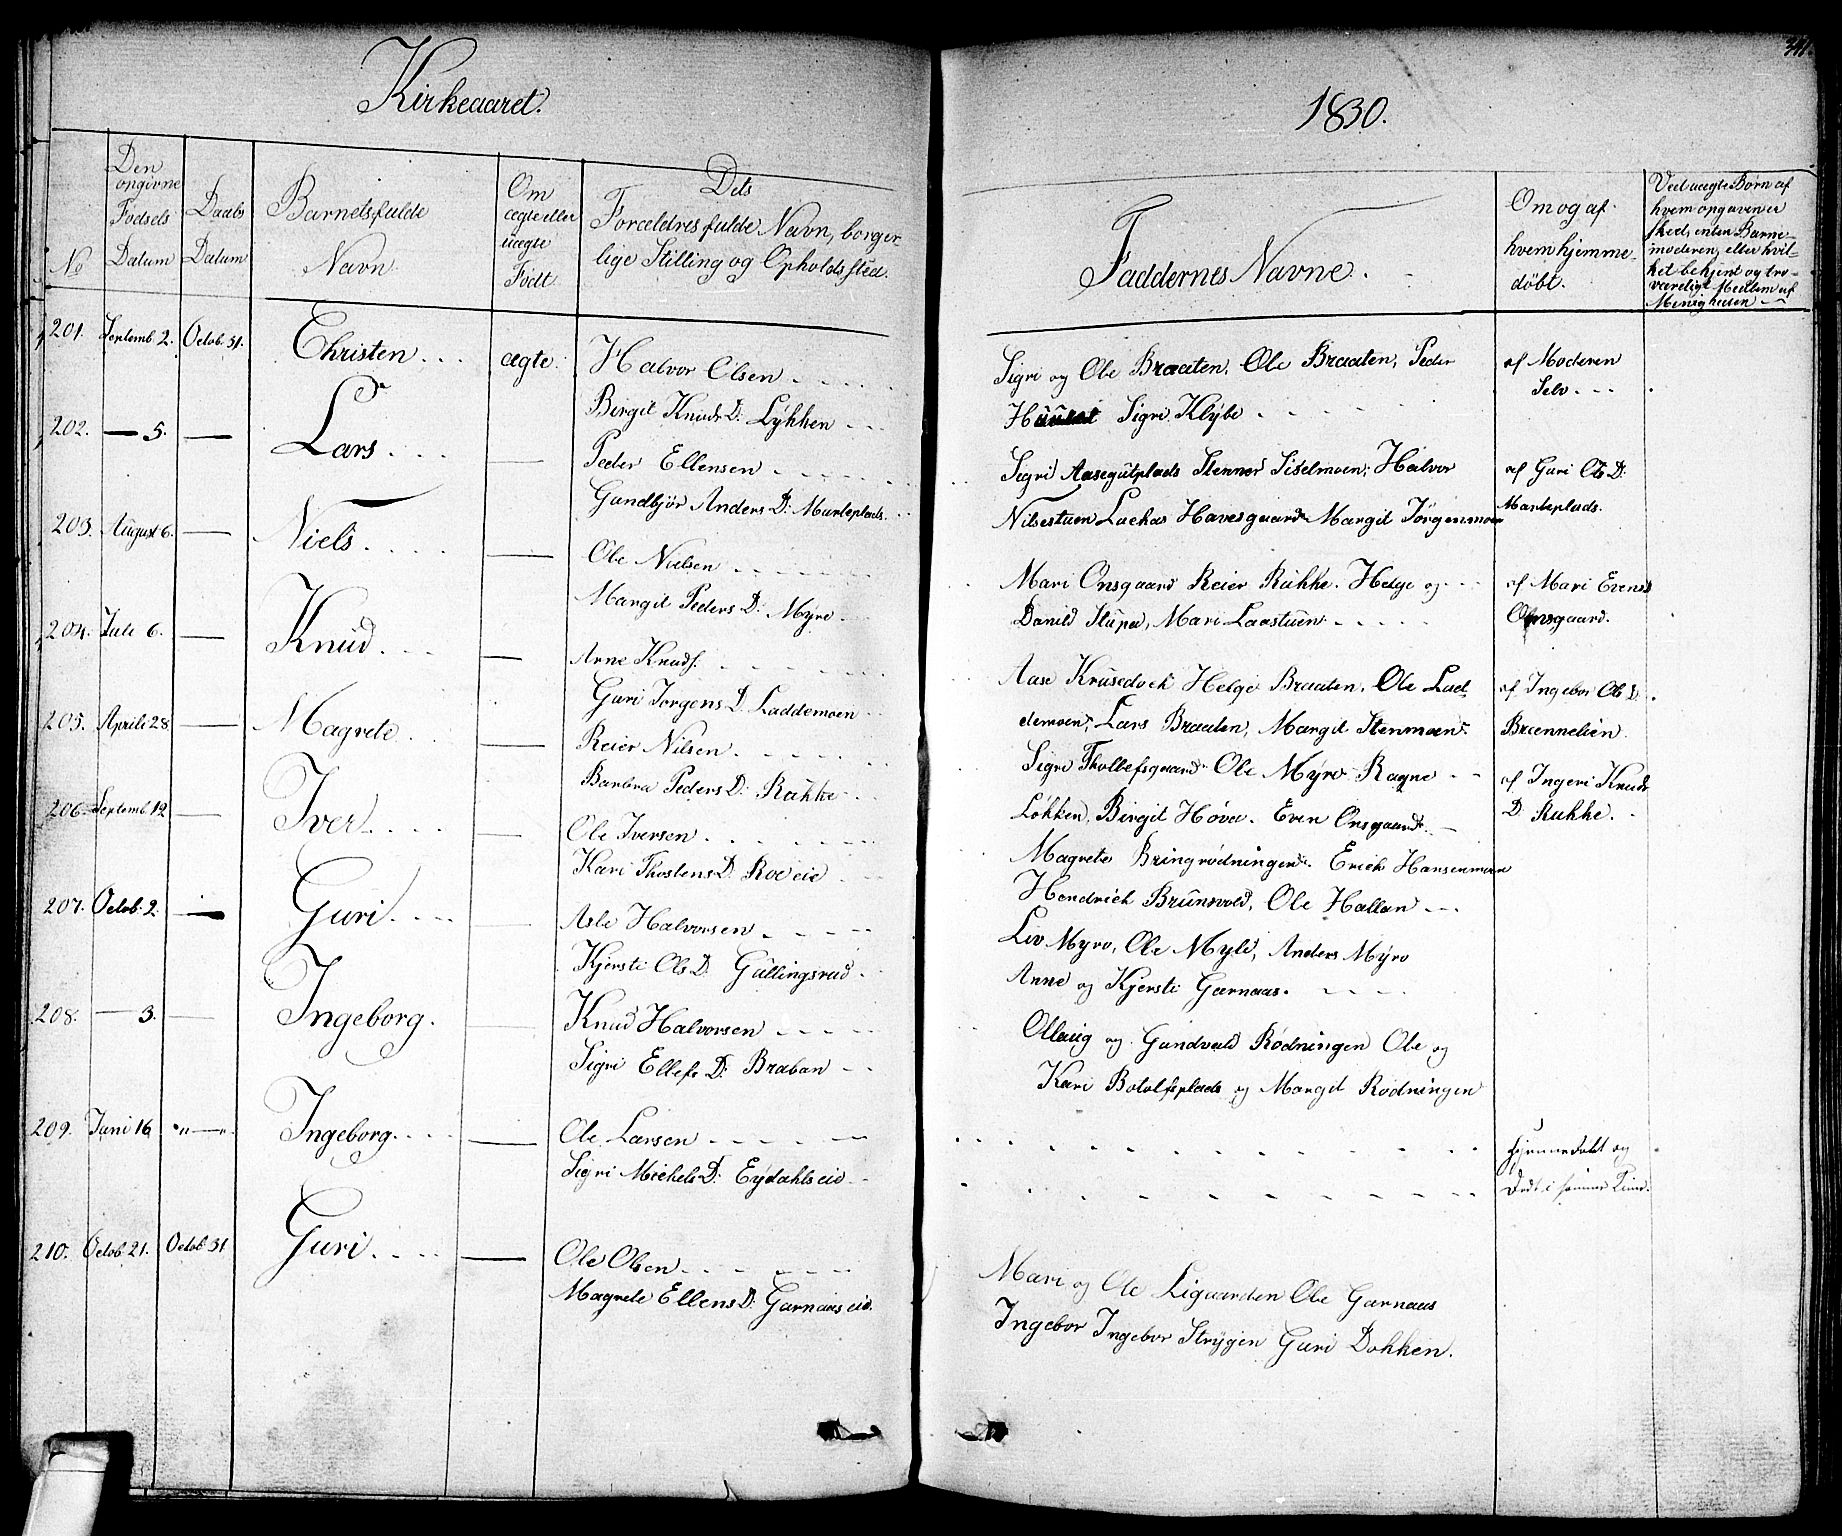 Kirkeaaret.
No
Den opgivne Fødsels Datum
Daabs Datum
Barnets fulde Navn
Om ægte eller uægte Født
Dets Forældres fulde Navn, borger-
lige Stilling og Opholdssted.
201. Septemb. 2. Octob. 31. Christen ægte. Halvor Olsen
Birgit Knuds D: Lykken
202. — 5. — Lars — Peder Ellensen
Gundbjör Anders D: Marteplads.
203. August 6. — Niels — Ole Nielsen
Margit Peders D: Myre
204. Juli 6. — Knud — Arne Knuds.
Guri Jorgens D. Laddemoen
205. Aprile 28. — Magrete — Reier Nilsen
Barbra Peders D: Rukke
206. Septemb. 19. — Iver — Ole Iversen
Kari Thostens D. Roe eie
207. Octob. 2. — Guri — Asle Halvorsen
Kjersti Ols D. Gullingsrud
208. — 3. — Ingeborg. — Knud Halvorsen
Sigri Ellefs D: Braban
209. Juni 16. — Ingeborg — Ole Larsen
Sigri Michels D: Eydahls eie
210. Octob. 21. Octob. 31 Guri — Ole Olsen
Magrete Ellens D: Garnaas eie.
1830.
Faddernes Navne.
Om og af
hvem hjemme-
døbt.
Ved uægte Børn af
hvem opgaven er
sked, enten Barne-
moderen, eller hvil-
ket bekjent og tro-
værdigt Medlem af
Menigheden
Sigri og Ole Braaten, Ole Braaten, Peder af Moderen
Sigri Klybe Selv
Sigri Aasegutplads Stenner Siselmoen, Halvor af Guri Ols D:
Nilsestuen Lachas Havesgaard Margit Jörgenmoen Marteplads.
Mari Onsgaard Reier Rukke. Helge og af Mari Evens D
Danild Stupa, Mari Laastuen Onsgaard.
Aase Krusedock Helge Braaten, Ole Lad af Ingebor Ols D
demoen, Lars Braaten, Margit Stenmoen. Brennelien.
Sigri Thollefsgaard Ole Myro Ragne af Ingeri Knuds
Løkken, Birgit Høva. Even Onsgaard. D. Rukke.
Magrete Bringrødningen. Erick Hansenmoen
Hendrick Brunsvold, Ole Hallan
Liv Myro, Ole Myld, Anders Myro
Anne og Kjersti Garnaas.
Ollaug og Gundvald Rødningen Ole og
Kari Botolfsplads og Margit Rødningen
hjemmedøbt og
Død i samme Time.
Mari og Ole Ligaarden Ole Garnaas
Ingebor Ingebor Strygen Guri Dokken.